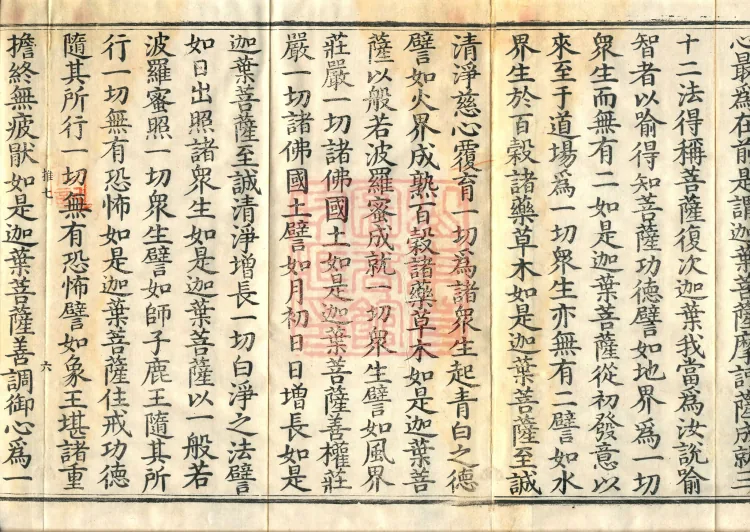 心最爲在前是謂迦葉菩薩摩訶薩成就三
十二法得稱菩薩復次迦葉我當爲汝說喻
智者以喻得知菩薩功德譬如地界爲一切
衆生而無有二如是迦葉菩薩從初發意以
來至于道場爲一切衆生亦無有二譬如水
界生於百穀諸藥草木如是迦葉菩薩至誠
清淨慈心覆育一切爲諸衆生起青白之德
譬如火界成熟百穀諸藥草木如是迦葉菩
薩以般若波羅蜜成就一切衆生譬如風界
莊嚴一切諸佛國土如是迦葉菩薩善權莊
嚴一切諸佛國土譬如月初日日增長如是
迦葉菩薩至誠清淨增長一切白淨之法譬
如日出照諸衆生如是迦葉菩薩以一般若
波羅蜜照一切衆生譬如師子鹿王隨其所
行一切無有恐怖如是迦葉菩薩住戒功德
隨其所行一切無有恐怖譬如象王堪諸重
推七 六
擔終無疲猒如是迦葉菩薩善調御心爲一